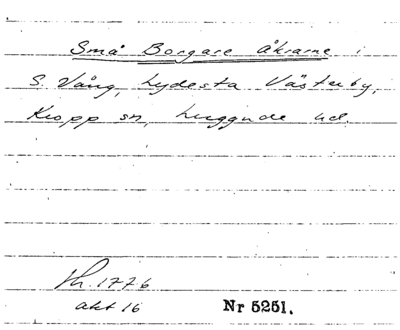 Små Borgare åkrarne i
S. Vång, Lydesta Västerby,
Kropp sn, Luggude hd.
Lh. 1776
akt 16
Nr 5251.